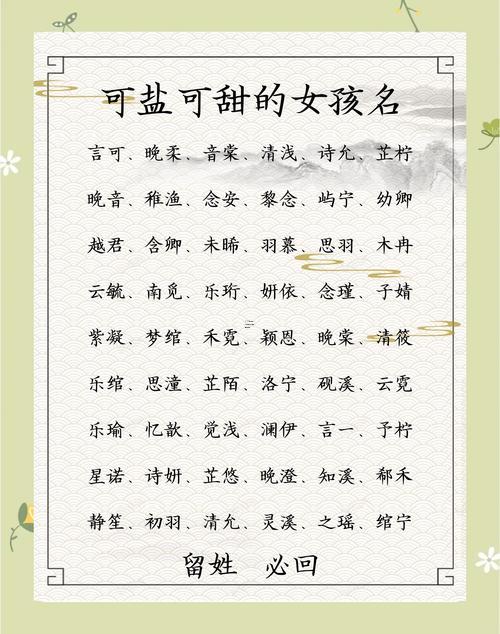 可盐可甜的女孩名
言可、晚柔、音棠、清浅、诗允、芷柠
晚音、稚渔、念安、黎念、屿宁、幼卿
越君、含卿、未晞、羽慕、思羽、木冉
云毓、南觅、乐珩、妍依、念瑾、子婧
紫凝、梦绾、禾霓、颖恩、晚棠、清筱
乐绾、思潼、芷陌、洛宁、砚溪、云霓
乐瑜、忆歆、觉浅、澜伊、言一、予柠
星诺、诗妍、芷悠、晚澄、知溪、郗禾
静笙、初羽、清允、灵溪、之瑶、绾宁
留姓 必回